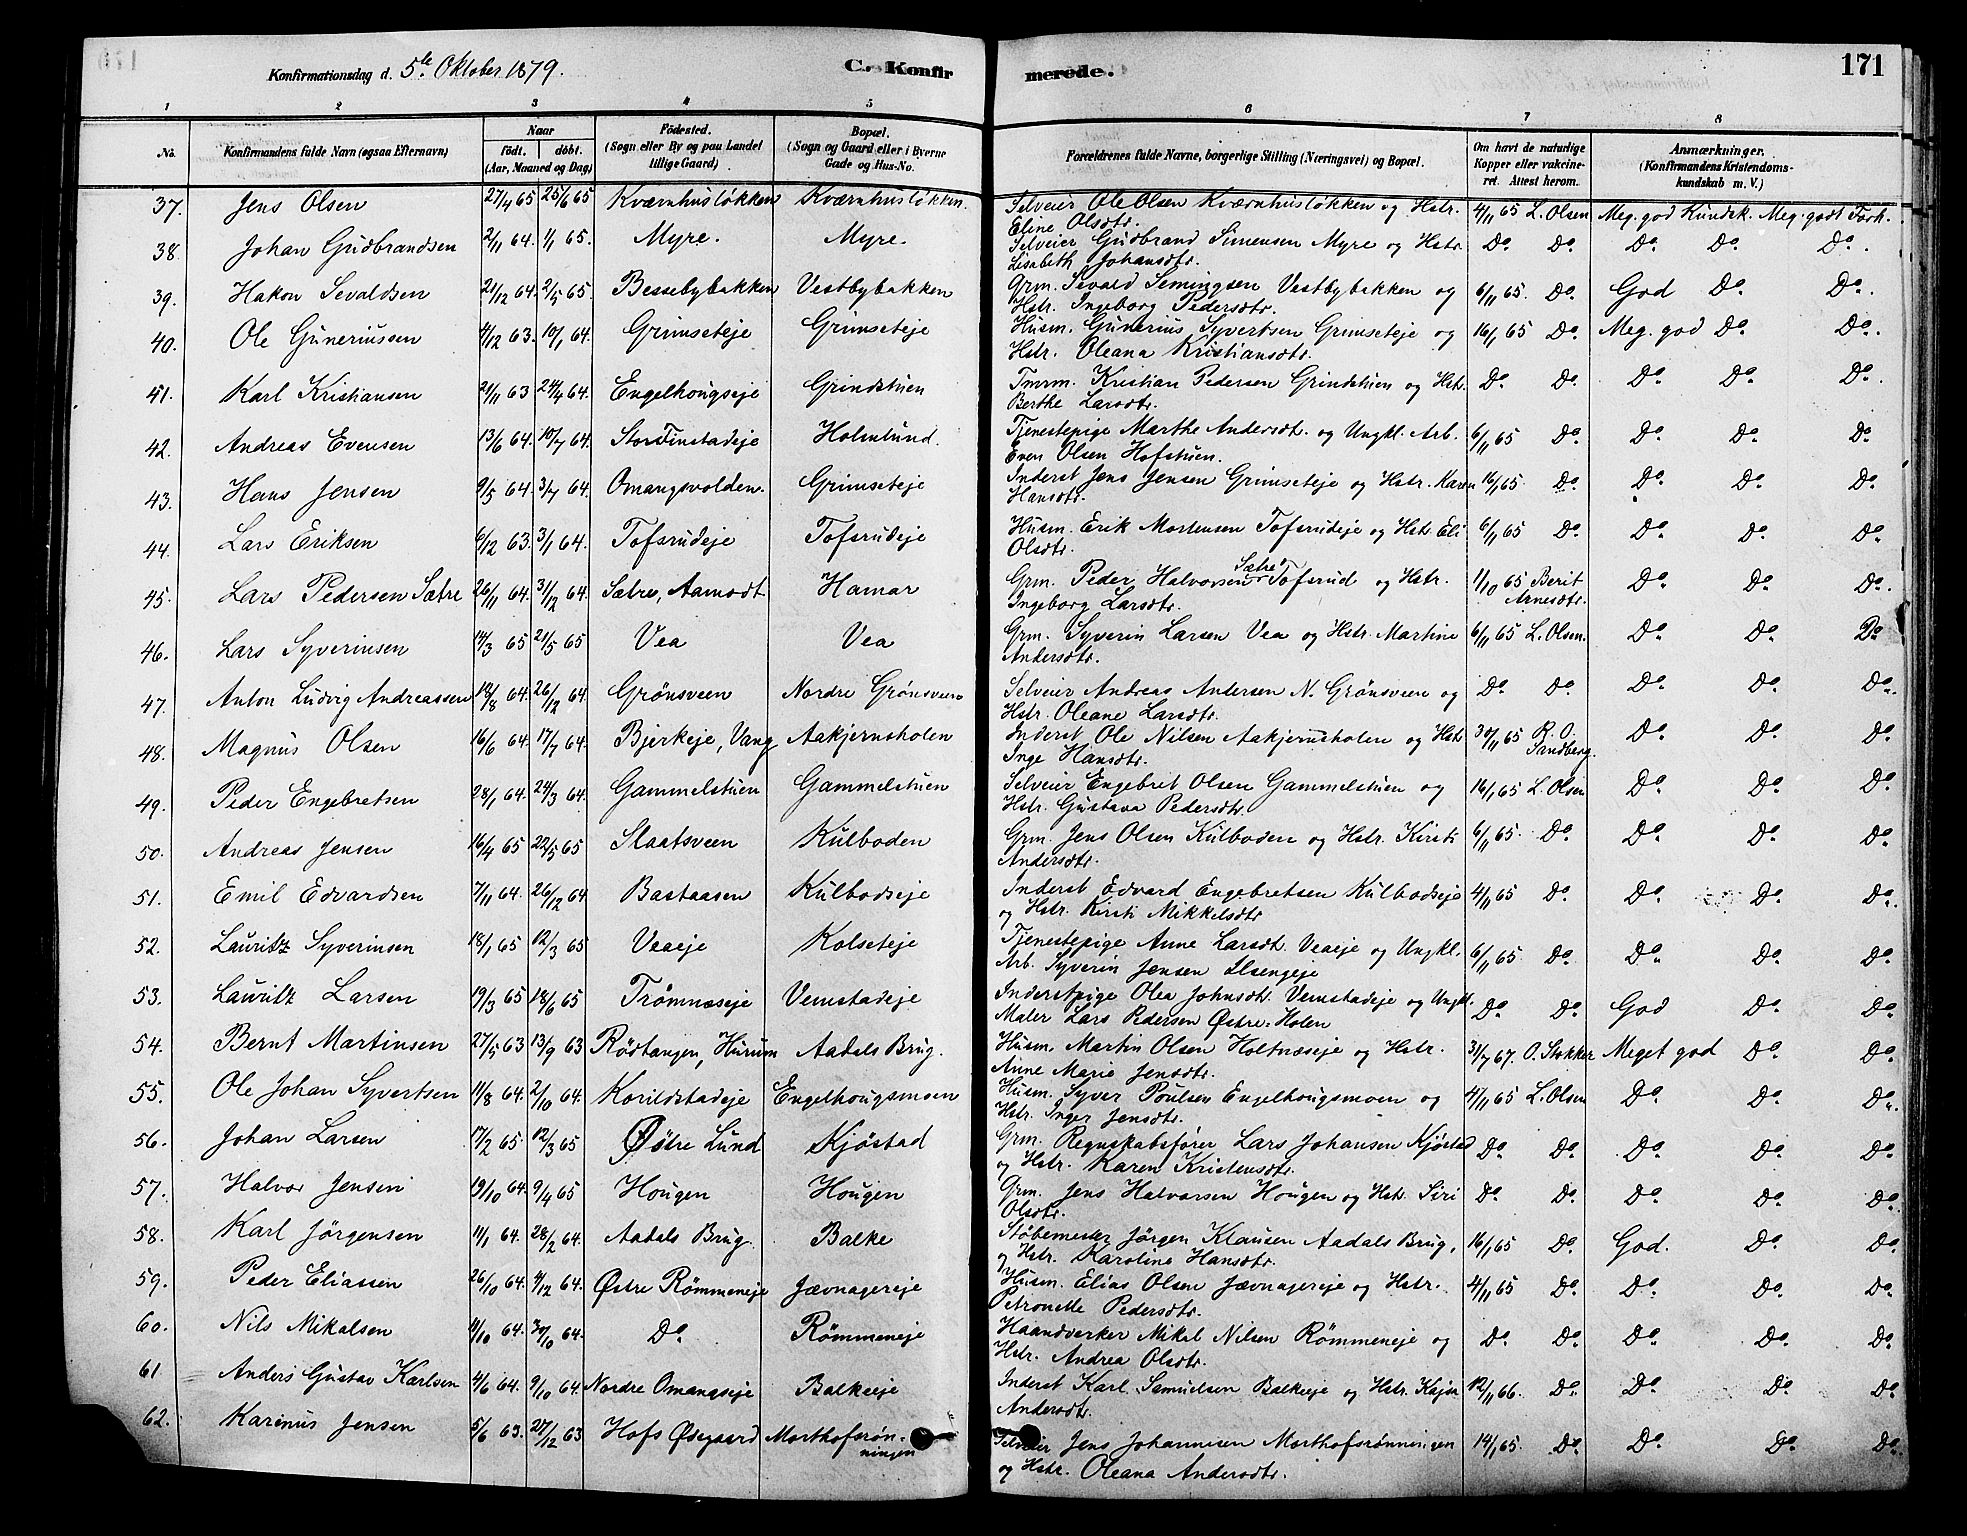 Konfirmationsdag d. 5te Oktober 1879. C. Konfirmerede. 171
1 2 3 4 5 6 7 8
No. Konfirmandens fulde Navn (ogsaa Efternavn) Naar födt. döbt. (Aar, Maaned og Dag) Födested. (Sogn eller By og paa Landet tillige Gaard) Bopæl. (Sogn og Gaard eller i Byerne Gade og Hus-No. Forældrenes fulde Navne, borgerlige Stilling (Næringsvei) og Bopæl. Om havt de naturlige Kopper eller vakcineret. Attest herom. Anmærkninger. (Konfirmandens Kristendomskundskab m. V.)
37. Jens Olsen 27/4 65 25/6 65 Kværnhusløkken Kværnhusløkken. Selveier Ole Olsen Kværnhusløkken og Hstr. 4/11 65 L. Olsen Meg. god Kundsk. Meg. godt Forh.
Eline Olsdtr.
38. Johan Gudbrandsen 2/11 64. 1/1 65. Myre. Myre. Selveier Gudbrand Simensen Myre og Hstr. Do Do. Do Do. Do.
Lisabeth Johansdtr.
39. Hakon Sevaldsen 21/12 64. 2/5 65. Bessebybakken Vestbybakken Grm. Sevald Semingsen Vestbybakken og 6/11 65. Do. God Do. Do.
Hstr. Ingeborg Pedersdtr.
40. Ole Guneriussen 4/12 63. 10/1 64. Grimseteje Grimseteje Husm. Gunerius Syvertsen Grimseteje og 16/1 65 Do. Meg. god Do. Do.
Hstr. Oleana Kristiansdtr.
41. Karl Kristiansen 21/11 63 24/4 64. Engelhougseje Grindstuen Tmrm. Kristian Pedersen Grindstuen og Hstr. Do. Do. Do. Do. Do.
Berthe Larsdtr.
42. Andreas Evensen 13/6 64. 10/7 64. Stor Finstadeje Holmlund. Tjenestepige Marthe Andersdt. og Ungkl. Arb. 6/11 65 Do. Do. Do. Do
Even Olsen Hofstuen.
43. Hans Jensen 9/5 64. 3/7 64. Omangsvolden. Grimseteje Inderst Jens Jensen Grimseteje og Hstr. Karen 16/1 65 Do. Do. Do. Do.
Hansdtr.
44. Lars Eriksen 6/12 63. 3/1 64. Tofsrudeje Tofsrudeje Husm. Erik Mortensen Tofsrudeje og Hstr. Eli 6/11 65 Do. Do. Do. Do.
Olsdtr.
45. Lars Pedersen Sætre 26/11 64. 31/12 64. Sætre, Aamodt Hamar Grm. Peder Halvorsen Sætre Tofsrud og Hstr. 1/10 65 Berit Arnesdtr. Do. Do. Do.
Ingeborg Larsdtr.
46. Lars Syverinsen 14/3 65 21/5 65 Vea Vea Grm. Syverin Larsen Vea og Hstr. Martine 6/11 65 L. Olsen. Do. Do. Do.
Andersdtr.
47. Anton Ludvig Andreassen 18/8 64. 26/12 64. Grønsveen Nordre Grønsveen Selveier Andreas Andersen N. Grønsveen og Do. Do. Do. Do. Do.
Hstr. Oleane Larsdtr.
48. Magnus Olsen 16/6 64. 17/7 64. Bjerkeje, Vang Aakjernsholen Inderst Ole Nilsen Aakjernsholen og Hstr. 30/11 65 R. O. Sandberg. Do. Do. Do.
Inge Hansdtr.
49. Peder Engebretsen 28/1 64. 24/3 64. Gammelstuen Gammelstuen Selveier Engebret Olsen Gammelstuen og 16/1 65 L. Olsen Do. Do. Do.
Hstr. Gustava Pedersdtr.
50. Andreas Jensen 16/4 65 22/5 65 Slaatsveen Kulboden Grm. Jens Olsen Kulboden og Hstr. Kirsti 6/11 65. Do. Do. Do. Do.
Andersdtr.
51. Emil Edvardsen 7/11 64. 26/12 64 Bastaasen Kulbodseje Inderst Edvard Engebretsen Kulbodseje 4/11 65 Do. Do. Do. Do.
og Hstr. Kirsti Mikkelsdtr
52. Lauritz Syverinsen 18/1 65 12/3 65 Veaeje Kolseteje Tjenestepige Anne Larsdt. Veaeje og Ungkl. 6/11 65 Do. Do. Do. Do.
Arb. Syverin Jensen Ilsengeje
53. Lauritz Larsen 19/3 65 18/6 65 Trømnæseje Vemstadeje Inderstpige Olea Johnsdt. Vemstadeje og Ungkl. Do. Do. God Do. Do.
Maler Lars Pedersen Østre-Holen
54. Bernt Martinsen 27/5 63 13/9 63 Rödtangen, Hurum Aadals Brug. Husm. Martin Olsen Holtnæseje og Hstr. 31/7 67. O. Stokker Meget god Do. Do.
Anne Marie Jensdtr.
55. Ole Johan Syvertsen 11/8 64. 2/10 64. Korildstadeje Engelhougsmoen Husm. Syver Poulsen Engelhougsmoen og 4/11 65 L. Olsen Do. Do. Do.
Hstr. Inger Jensdtr.
56. Johan Larsen 17/2 65. 12/3 65 Østre Lund Kjøstad Grm. Regnskabsfører Lars Johansen Kjøstad Do. Do. Do. Do. Do.
og Hstr. Karen Kristensdtr.
57. Halvor Jensen 19/10 64. 9/4 65 Hougen Hougen Grm. Jens Halvorsen Hougen og Hstr. Siri Do. Do. Do. Do. Do.
Olsdtr.
58. Karl Jörgensen 11/1 64. 28/2 64. Aadals Brug. Balke Støbemester Jörgen Klausen Aadals Brug, 16/1 65 Do. God. Do. Do.
og Hstr. Karoline Hansdtr.
59. Peder Eliassen 26/10 64. 4/12 64. Østre Römmeneje Jævnagereje Husm. Elias Olsen Jævnagereje og Hstr. 4/11 65 Do. Do. Do. Do.
Petronelle Pedersdtr.
60. Nils Mikalsen 11/10 64. 30/10 64. Do. Römmeneje Haandverker Mikal Nilsen Römmeneje og Do. Do. Do. Do. Do.
Hstr. Andrea Olsdtr.
61 Anders Gustav Karlsen 4/6 64. 9/10 64. Nordre Omangseje Balkeeje Inderst Karl Samuelsen Balkeeje og Hstr. Kajsa 12/11 66. Do. Do. Do. Do.
Andersdtr.
62. Karinus Jensen 5/6 63. 27/12 63 Hofs Ødegaard Morthofsrönningen Selveier Jens Johannesen Morthofsrönningen 14/1 65. Do. Do. Do. Do.
og Hstr. Oleana Andersdtr.